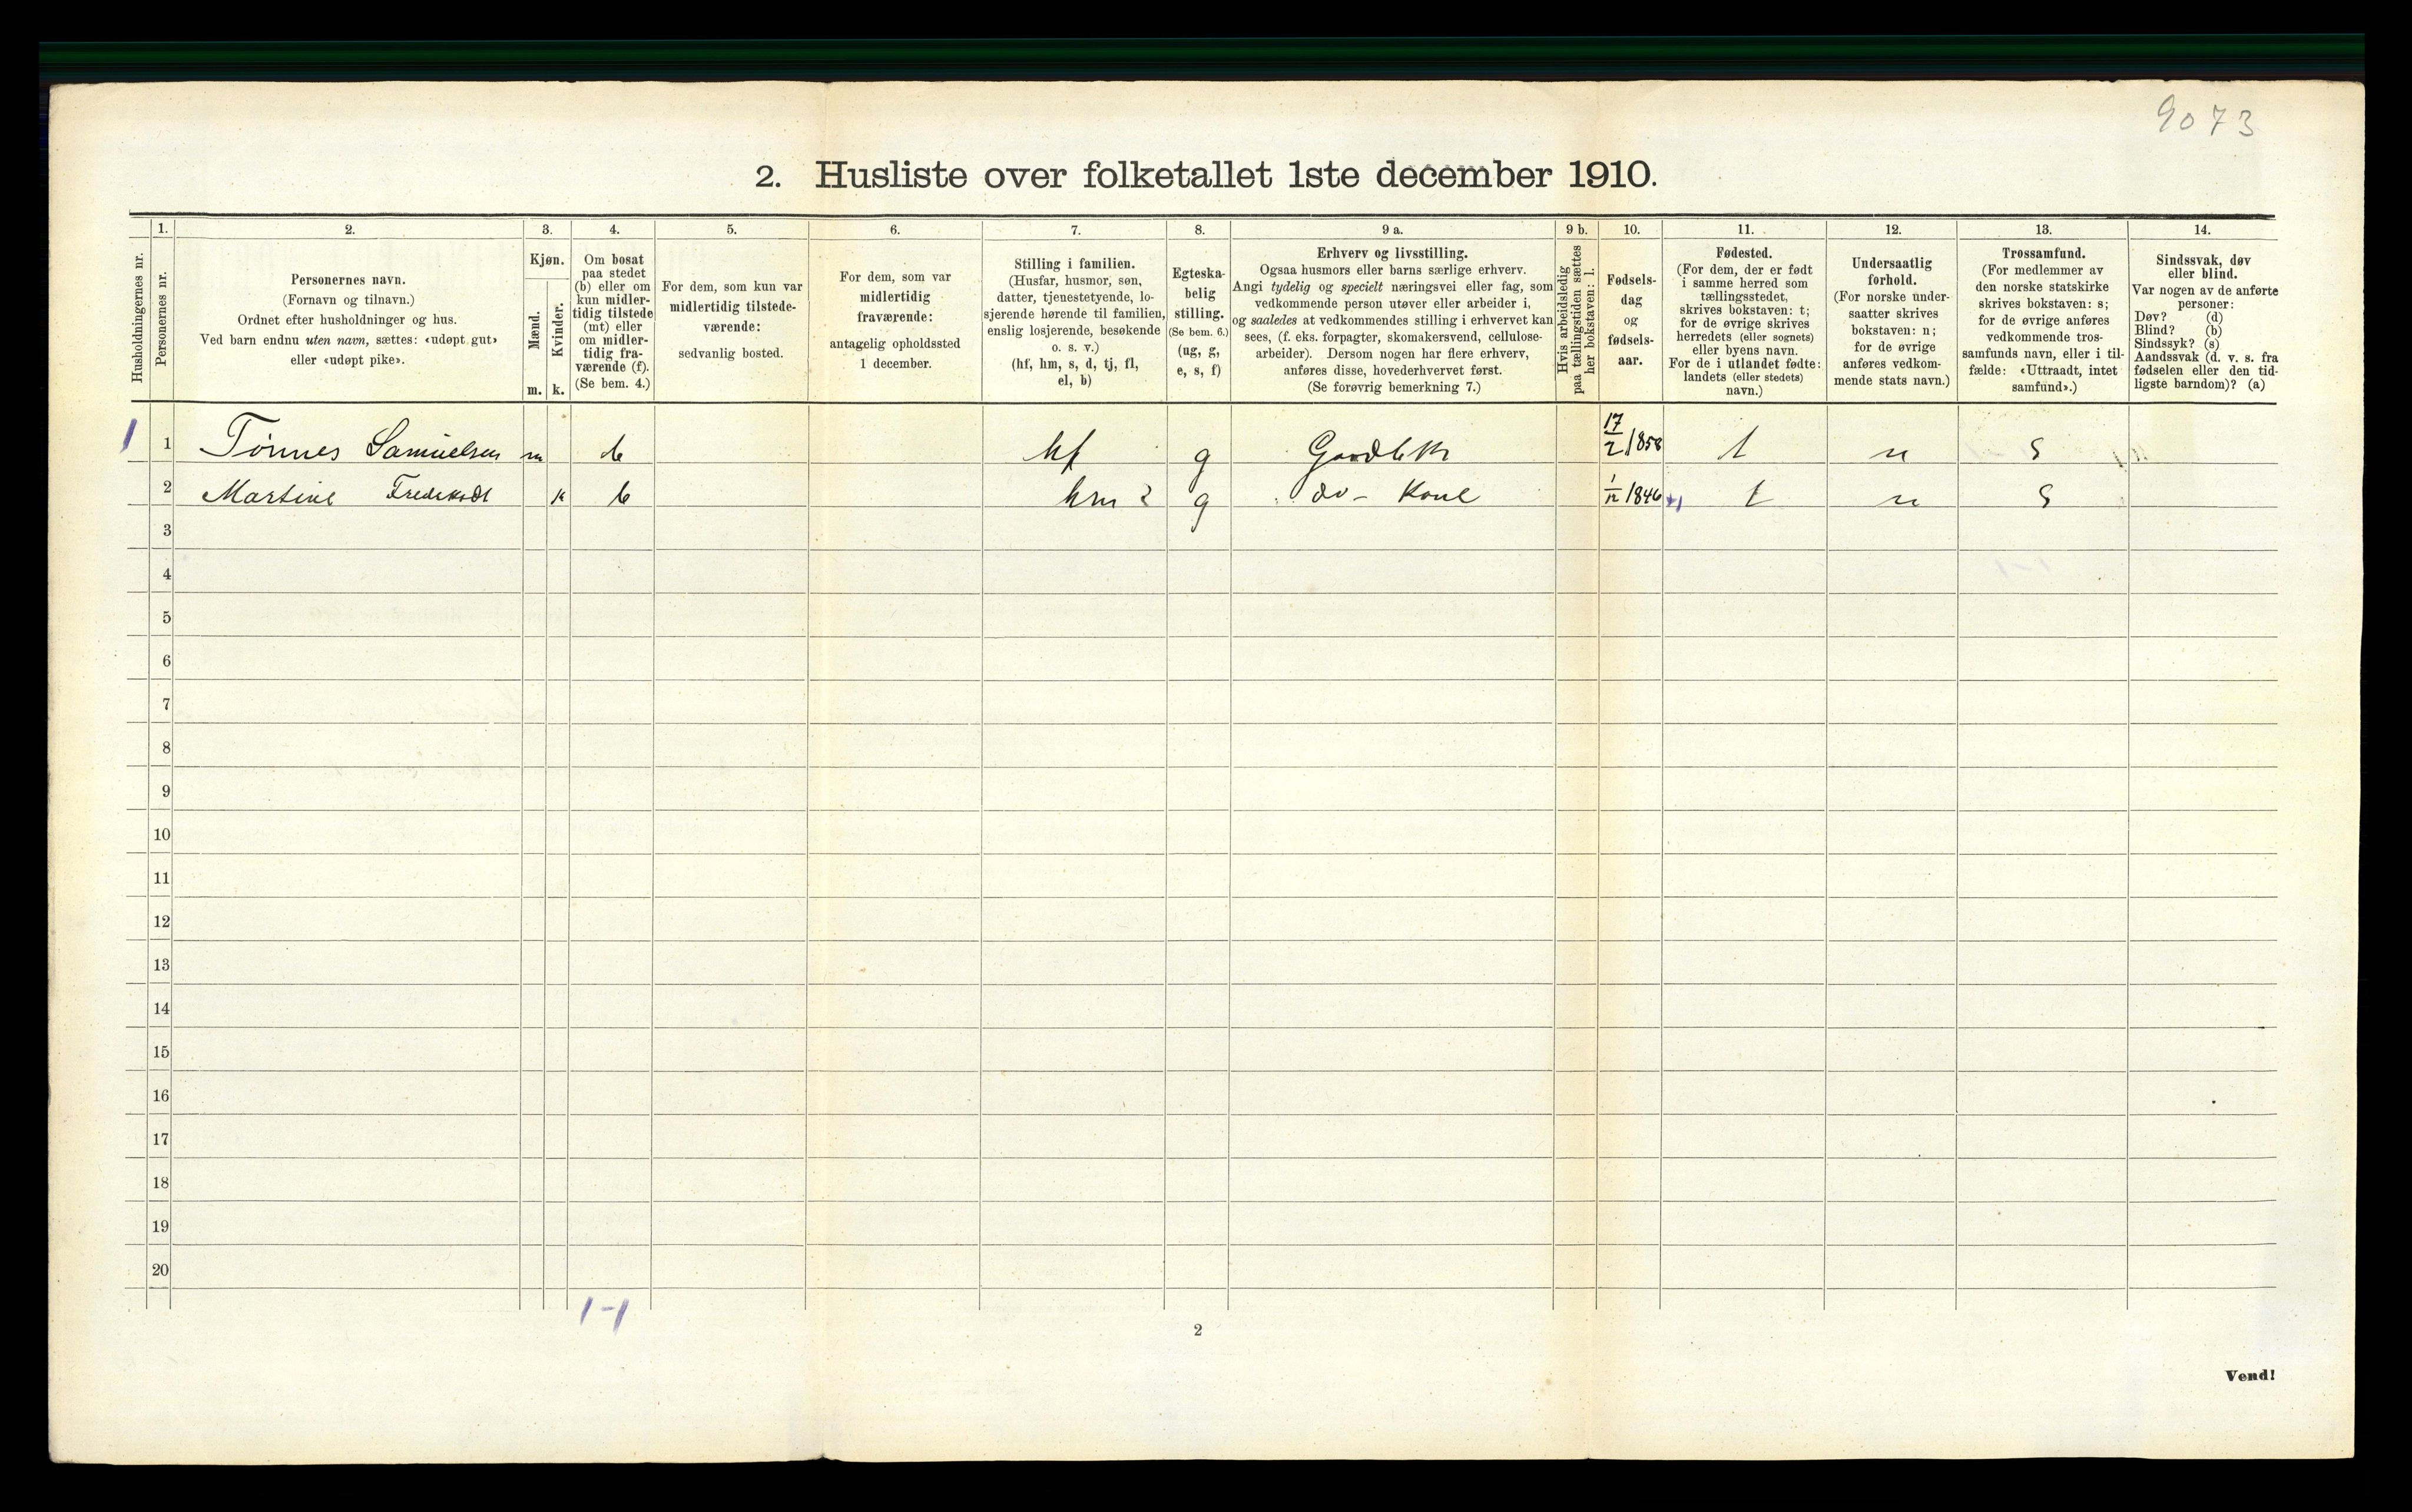 9073
2. Husliste over folketallet 1ste december 1910.
1. 2. 3. 4. 5. 6. 7. 8. 9 a. 9 b. 10. 11. 12. 13. 14.
Husholdningernes nr.
Personernes nr.
Personernes navn.
(Fornavn og tilnavn.)
Ordnet efter husholdninger og hus.
Ved barn endnu uten navn, sættes: «udøpt gut»
eller «udøpt pike».
Kjøn.
Mænd.
Kvinder.
m. k.
Om bosat
paa stedet
(b) eller om
kun midler-
tidig tilstede
(mt) eller
om midler-
tidig fra-
værende (f).
(Se bem. 4.)
For dem, som kun var
midlertidig tilstede-
værende:
sedvanlig bosted.
For dem, som var
midlertidig
fraværende:
antagelig opholdssted
1 december.
Stilling i familien.
(Husfar, husmor, søn,
datter, tjenestetyende, lo-
sjerende hørende til familien,
enslig losjerende, besøkende
o. s. v.)
(hf, hm, s, d, tj, fl,
el, b)
Egteska-
belig
stilling.
(Se bem. 6.)
(ug, g,
e, s, f)
Erhverv og livsstilling.
Ogsaa husmors eller barns særlige erhverv.
Angi tydelig og specielt næringsvei eller fag, som
vedkommende person utøver eller arbeider i,
og saaledes at vedkommendes stilling i erhvervet kan
sees, (f. eks. forpagter, skomakersvend, cellulose-
arbeider). Dersom nogen har flere erhverv,
anføres disse, hovederhvervet først.
(Se forøvrig bemerkning 7.)
Hvis arbeidsledig
paa tællingstiden sættes
her bokstaven: l.
Fødsels-
dag
og
fødsels-
aar.
Fødested.
(For dem, der er født
i samme herred som
tællingsstedet,
skrives bokstaven: t;
for de øvrige skrives
herredets (eller sognets)
eller byens navn.
For de i utlandet fødte:
landets (eller stedets)
navn.)
Undersaatlig
forhold.
(For norske under-
saatter skrives
bokstaven: n;
for de øvrige
anføres vedkom-
mende stats navn.)
Trossamfund.
(For medlemmer av
den norske statskirke
skrives bokstaven: s;
for de øvrige anføres
vedkommende tros-
samfunds navn, eller i til-
fælde: «Uttraadt, intet
samfund».)
Sindssvak, døv
eller blind.
Var nogen av de anførte
personer:
Døv? (d)
Blind? (b)
Sindssyk? (s)
Aandssvak (d. v. s. fra
fødselen eller den tid-
ligste barndom)? (a)
1 1 Tønnes Samuelsen m b hf g 17/2 1858 t n s
2 Martine k b hm g do - Kone 1846 t n s
3
4
5
6
7
8
9
10
11
12
13
14
15
16
17
18
19
20
1-1
2
Vend!